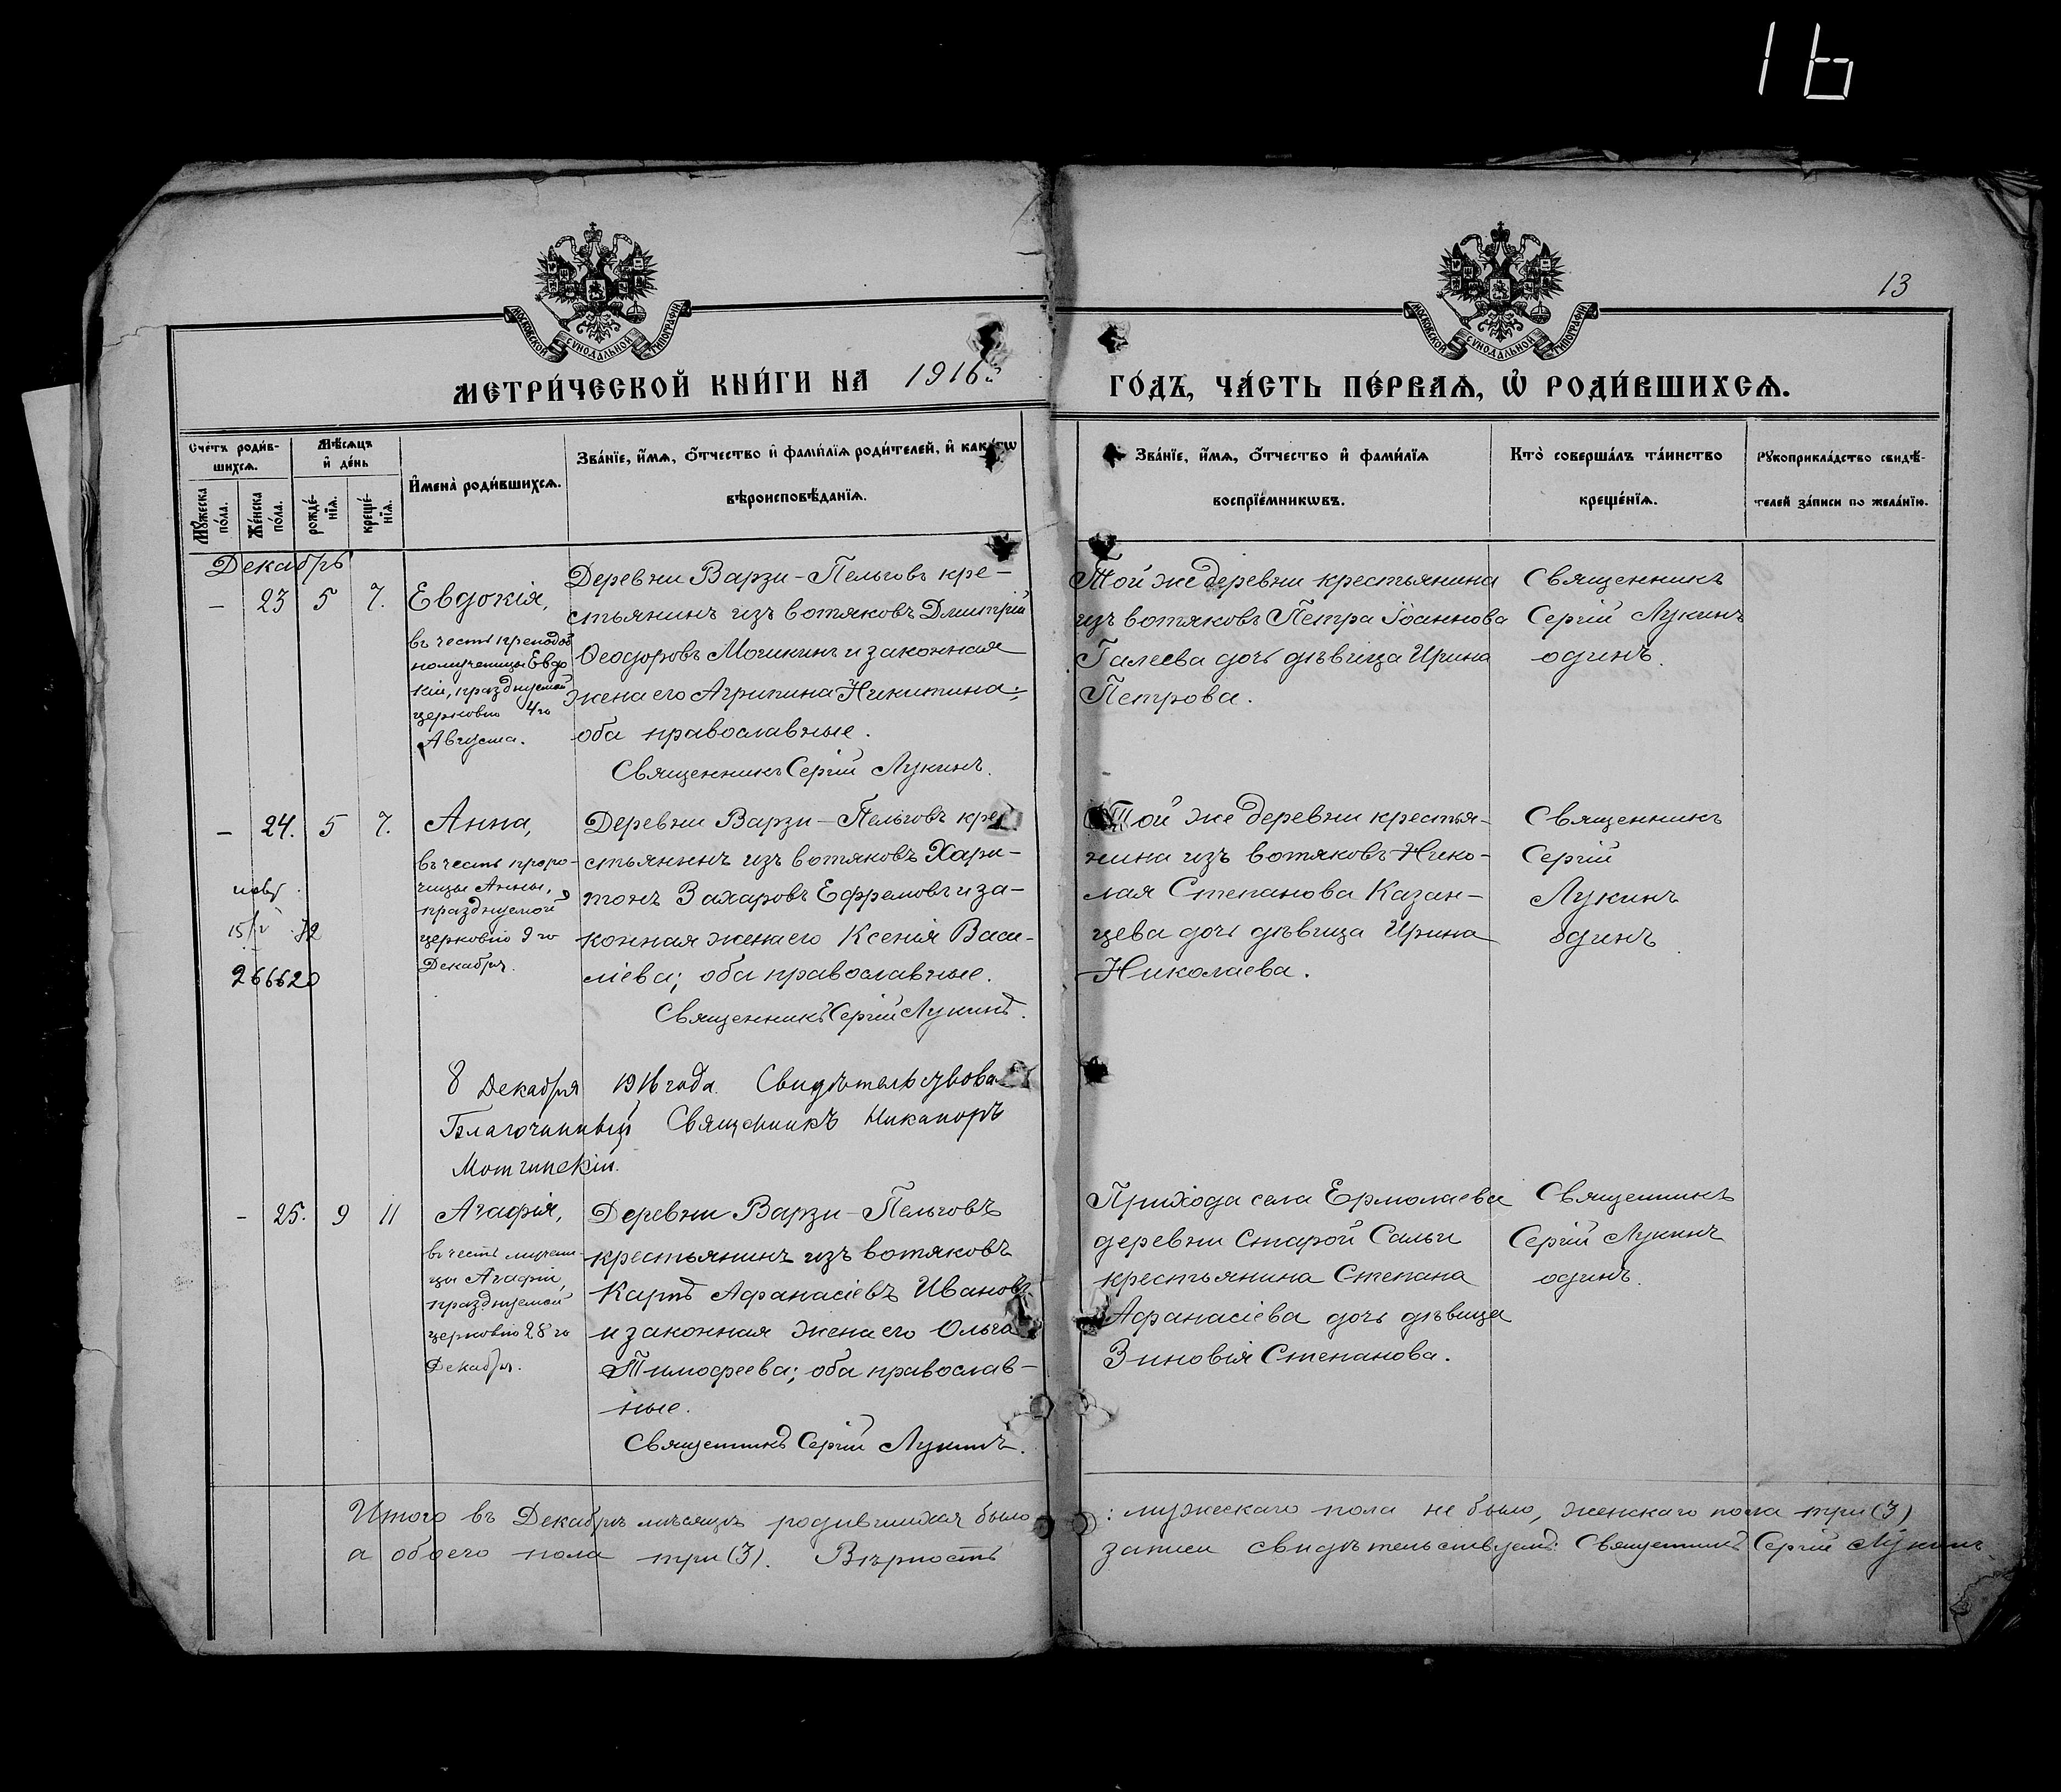 16
13
МОСКОВСКОЙ СѴНОДАЛЬНОЙ ТИПОГРАФІИ
МОСКОВСКОЙ СѴНОДАЛЬНОЙ ТИПОГРАФІИ
МЕТРИ́ЧЕСКОЙ КНИ́ГИ НА 1916 ГО́ДЪ, ЧА́СТЬ ПЕ́РВАѦ, Ѽ РОДИ́ВШИХСѦ.
Сче́тъ роди́в-
шихсѧ.
Мꙋ́жеска по́ла.
Же́нска по́ла.
Мѣ́сѧцъ
и҆ де́нь
рожде́-
нїѧ.
креще́-
нїѧ.
И҆мена̀ роди́вшихсѧ.
Зва́нїе, и҆́мѧ, ѻ҆́тчество и҆ фамѝлїѧ роди́телей, и҆ како́гѡ
вѣроисповѣ́данїѧ.
Зва́нїе, и҆́мѧ, ѻ҆́тчество и҆ фами́лїѧ
воспрїе́мникѡвъ.
Кто̀ соверша́лъ та́инство
креще́нїѧ.
Рꙋкоприкла́дство свидѣ́-
телей за́писи по жела́нїю.
Декабрь
— 23 5 7.
Евдокія,
въ честь преподоб
номученицы Евдо
кіи, празднуемой
церковію 4го
Августа.
Деревни Варзи-Пельговъ кре-
стьянинъ изъ вотяковъ Дмитрій
Ѳеодоровъ Мошкинъ и законная
жена его Агрипина Никитина;
оба православные.
Священникъ Сергій Лукинъ.
Той же деревни крестьянина
изъ вотяковъ Петра Іоаннова
Галеева дочь дѣвица Ирина
Петрова.
Священникъ
Сергій Лукинъ
одинъ.
— 24. 5 7.
Анна,
въ честь проро-
чицы Анны,
празднуемой
церковію 9го
Декабря.
266620
Деревни Варзи-Пельговъ кре-
стьянинъ изъ вотяковъ Хари-
тонъ Захаровъ Ефремовъ и за-
конная жена его Ксенія Васи-
ліева; оба православные.
Священникъ Сергій Лукинъ.
Той же деревни крестья-
нина изъ вотяковъ Нико-
лая Степанова Казан-
цева дочь дѣвица Ирина
Николаева.
Священникъ
Сергій
Лукинъ
одинъ.
8 Декабря 1916 года. Свидѣтельствова
Благочинный Священникъ Никаноръ
— 25. 9 11
Агафія,
въ честь мучени-
цы Агафіи,
празднуемой
церковію 28го
Декабря.
Деревни Варзи-Пельговъ
крестьянинъ изъ вотяковъ
Карпъ Афанасіевъ Ивановъ
и законная жена его Ольга
Тимофеева; оба православ-
ные.
Священникъ Сергій Лукинъ.
Прихода села Ермолаева
деревни Старой Сальи
крестьянина Степана
Афанасіева дочь дѣвица
Зиновія Степанова.
Священникъ
Сергій Лукинъ
одинъ.
Итого въ Декабрѣ мѣсяцѣ родившихся было: мужескаго пола не было, женскаго пола три (3)
а обоего пола три (3). Вѣрность записи свидѣтельствуемъ: Священникъ Сергій Лукинъ